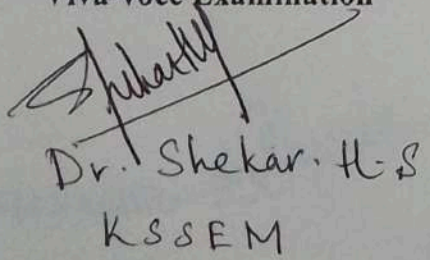 Viva Voce Examination
Shekar H
Dr. Shekar. H-S
KSSEM